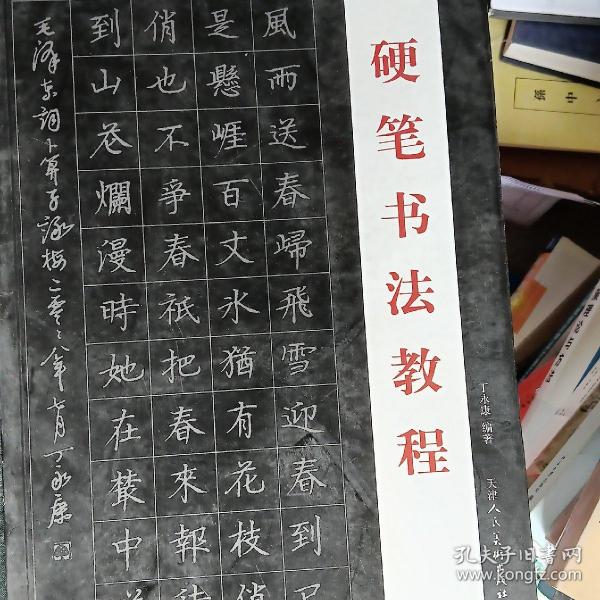 硬笔书法教程
丁永康 编著
天津人民美術出版社
風雨送春歸飛雪迎春到
是懸崖百丈冰猶有花枝俏
俏也不爭春祇把春來報待
到山花爛漫時她在叢中
毛澤东詞卜算子詠梅二零零八年七月丁永康
孫中
孔夫子旧书网
www.kongfz.com